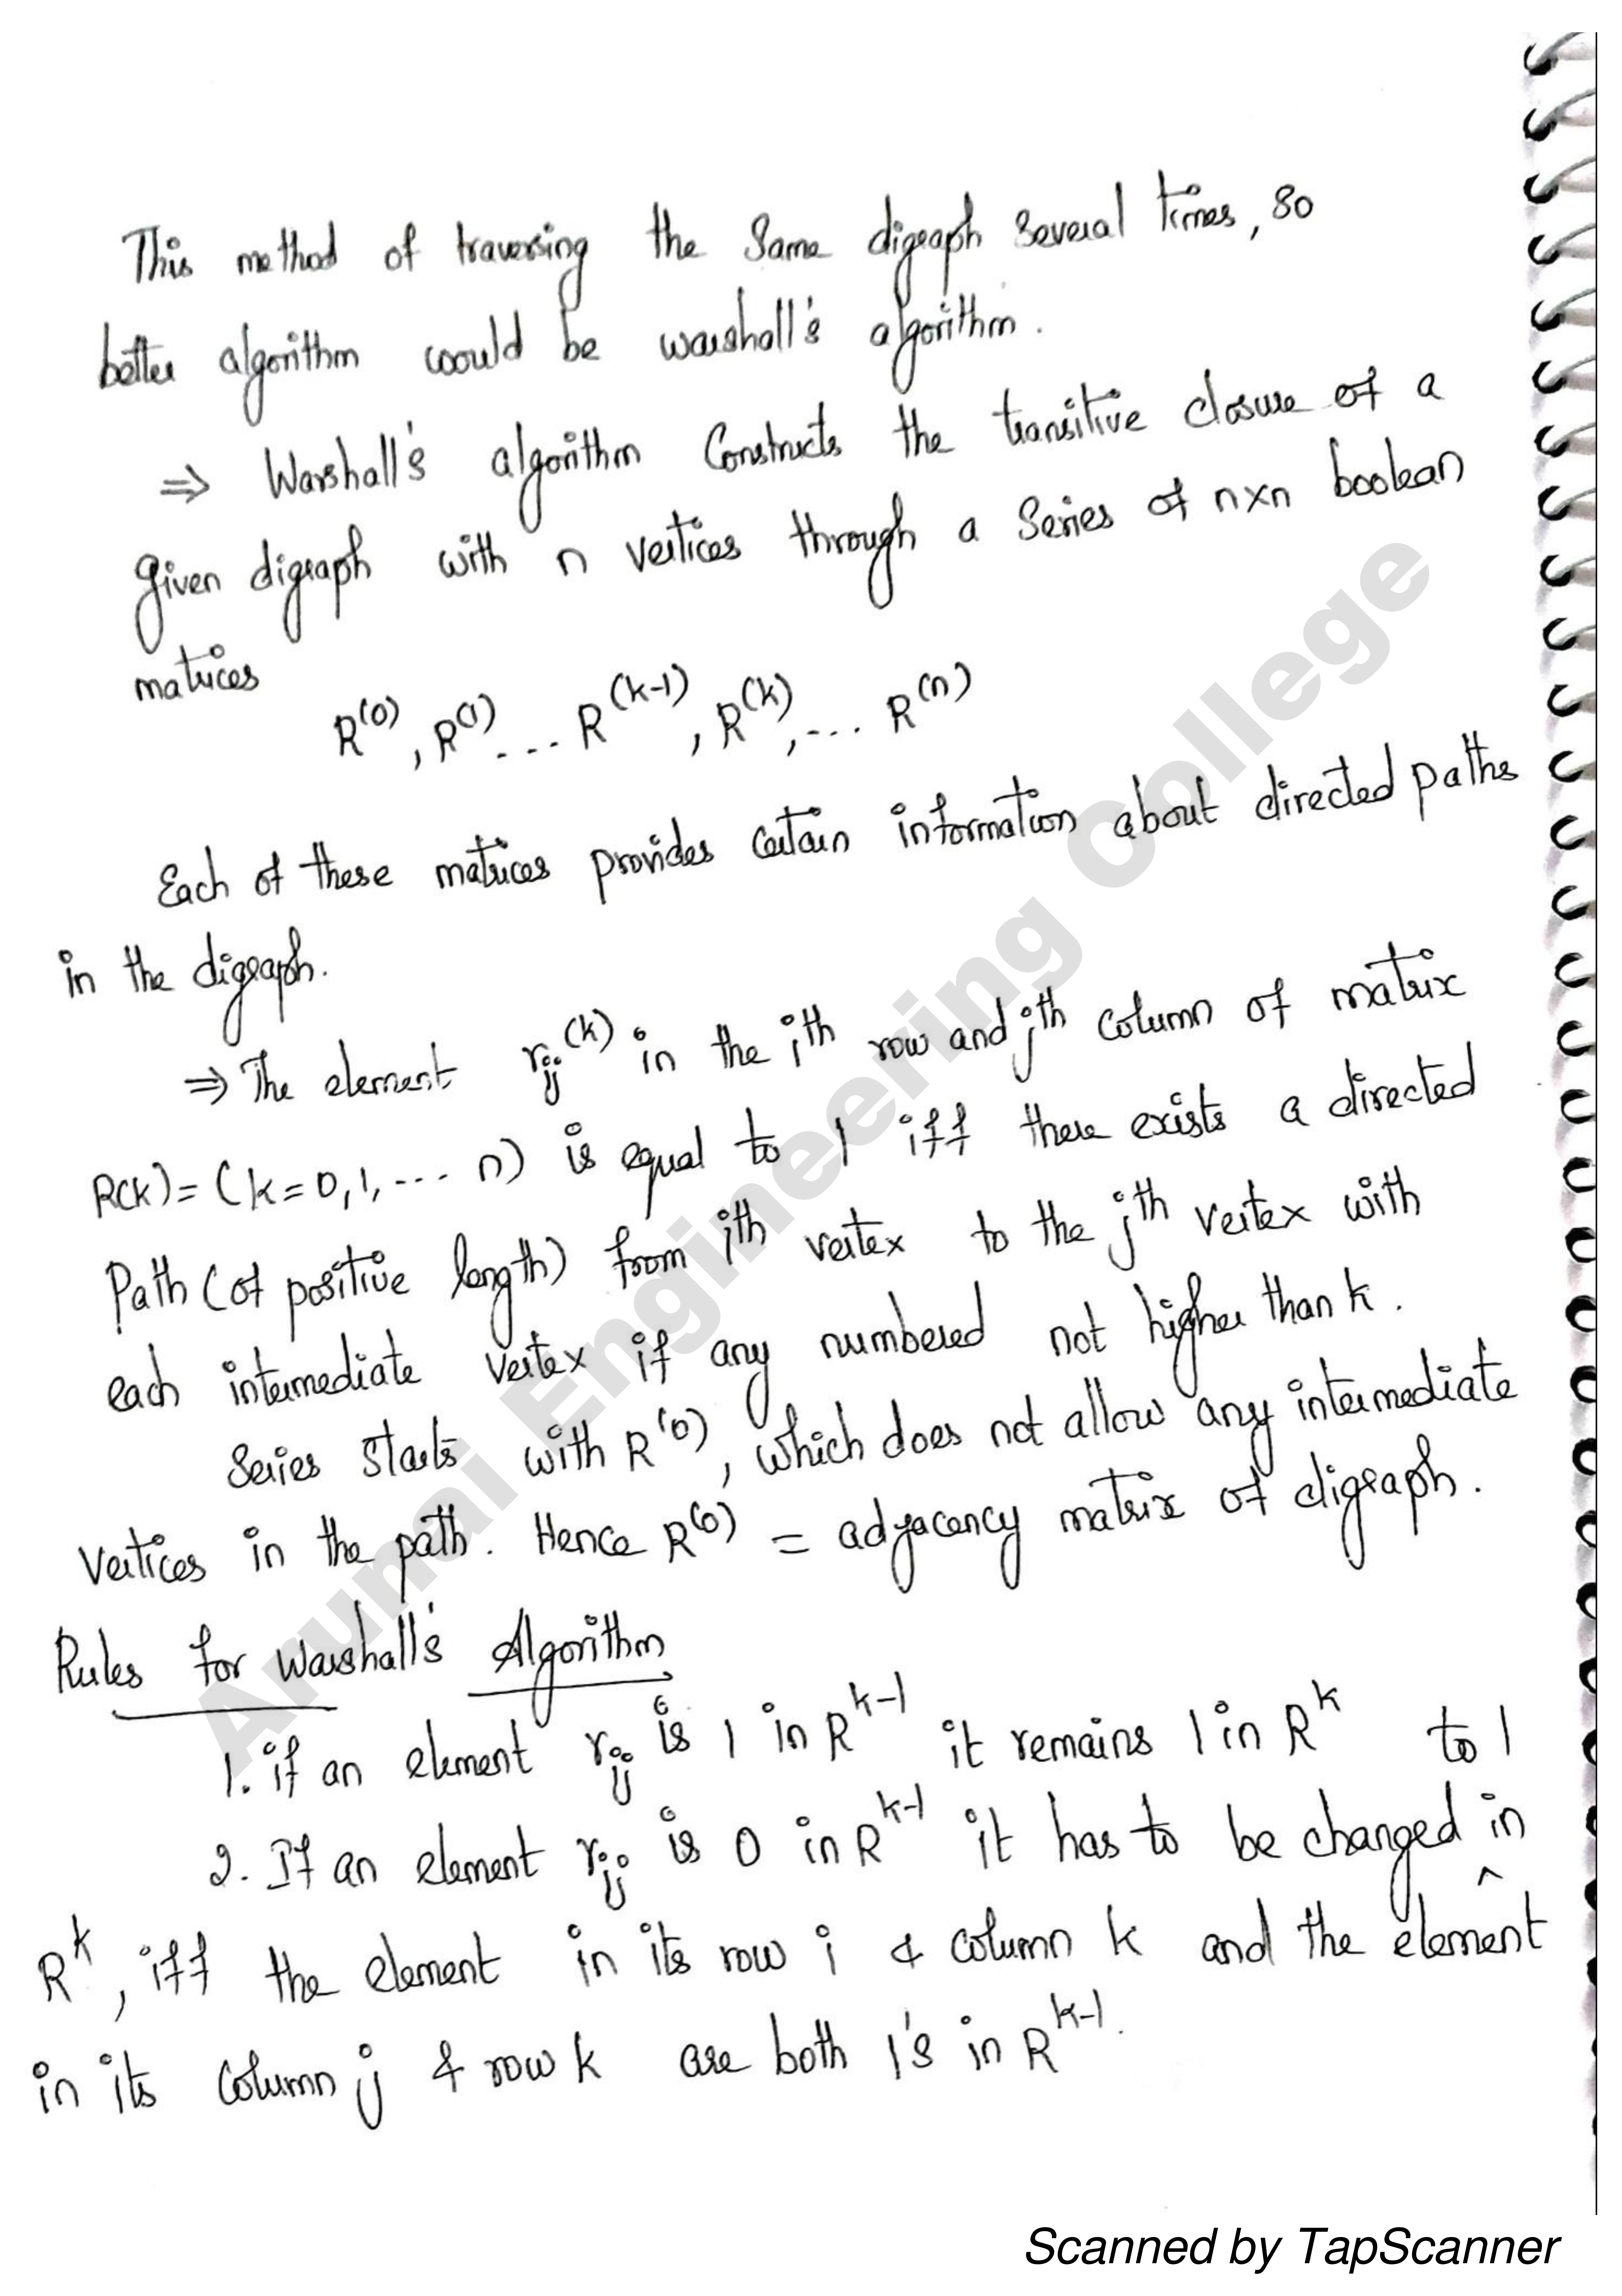 This method of traversing the same digraph several times, so
better algorithm would be warshall's algorithm.
⇒ Warshall's algorithm Constructs the transitive closure of a
given digraph with n vertices through a series of n×n boolean
matrices
R⁽⁰⁾, R⁽¹⁾ ... R⁽ᵏ⁻¹⁾, R⁽ᵏ⁾, ... R⁽ⁿ⁾
Each of these matrices provides certain information about directed paths
in the digraph.
⇒ The element rᵢⱼ⁽ᵏ⁾ in the iᵗʰ row and jᵗʰ column of matrix
R(k) = (k=0,1,... n) is equal to 1 iff there exists a directed
Path (of positive length) from ith vertex to the jᵗʰ vertex with
each intermediate vertex if any numbered not higher than k.
Series starts with R⁽⁰⁾, which does not allow any intermediate
vertices in the path. Hence R⁽⁰⁾ = adjacency matrix of digraph.
Rules for Warshall's Algorithm
1. if an element rᵢⱼ is 1 in Rᵏ⁻¹ it remains 1 in Rᵏ
to 1
2. If an element rᵢⱼ is 0 in Rᵏ⁻¹ it has to be changed ^ in
Rᵏ, iff the element in its row i & column k and the element
in its column j & row k are both 1's in Rᵏ⁻¹.
Arunai Engineering College
Scanned by TapScanner